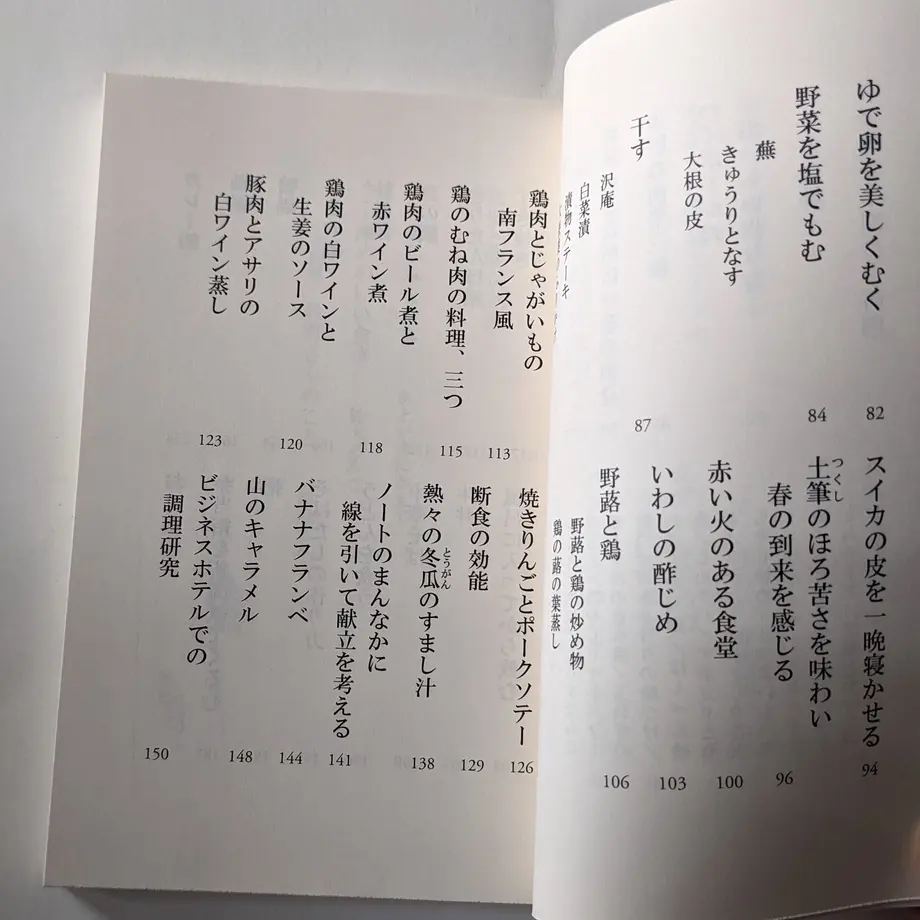 ゆで卵を美しくむく
82
野菜を塩でもむ
84
蕪
きゅうりとなす
大根の皮
干す
87
沢庵
白菜漬
漬物ステーキ
スイカの皮を一晩寝かせる
94
土筆のほろ苦さを味わい
つくし
春の到来を感じる
96
赤い火のある食堂
100
いわしの酢じめ
103
野蕗と鶏
106
野蕗と鶏の炒め物
鶏の蕗の葉蒸し
鶏肉とじゃがいもの
南フランス風
113
鶏のむね肉の料理、三つ
115
鶏肉のビール煮と
赤ワイン煮
118
鶏肉の白ワインと
生姜のソース
120
豚肉とアサリの
白ワイン蒸し
123
焼きりんごとポークソテー
126
断食の効能
129
熱々の冬瓜のすまし汁
とうがん
138
ノートのまんなかに
線を引いて献立を考える
141
バナナフランベ
144
山のキャラメル
148
ビジネスホテルでの
調理研究
150